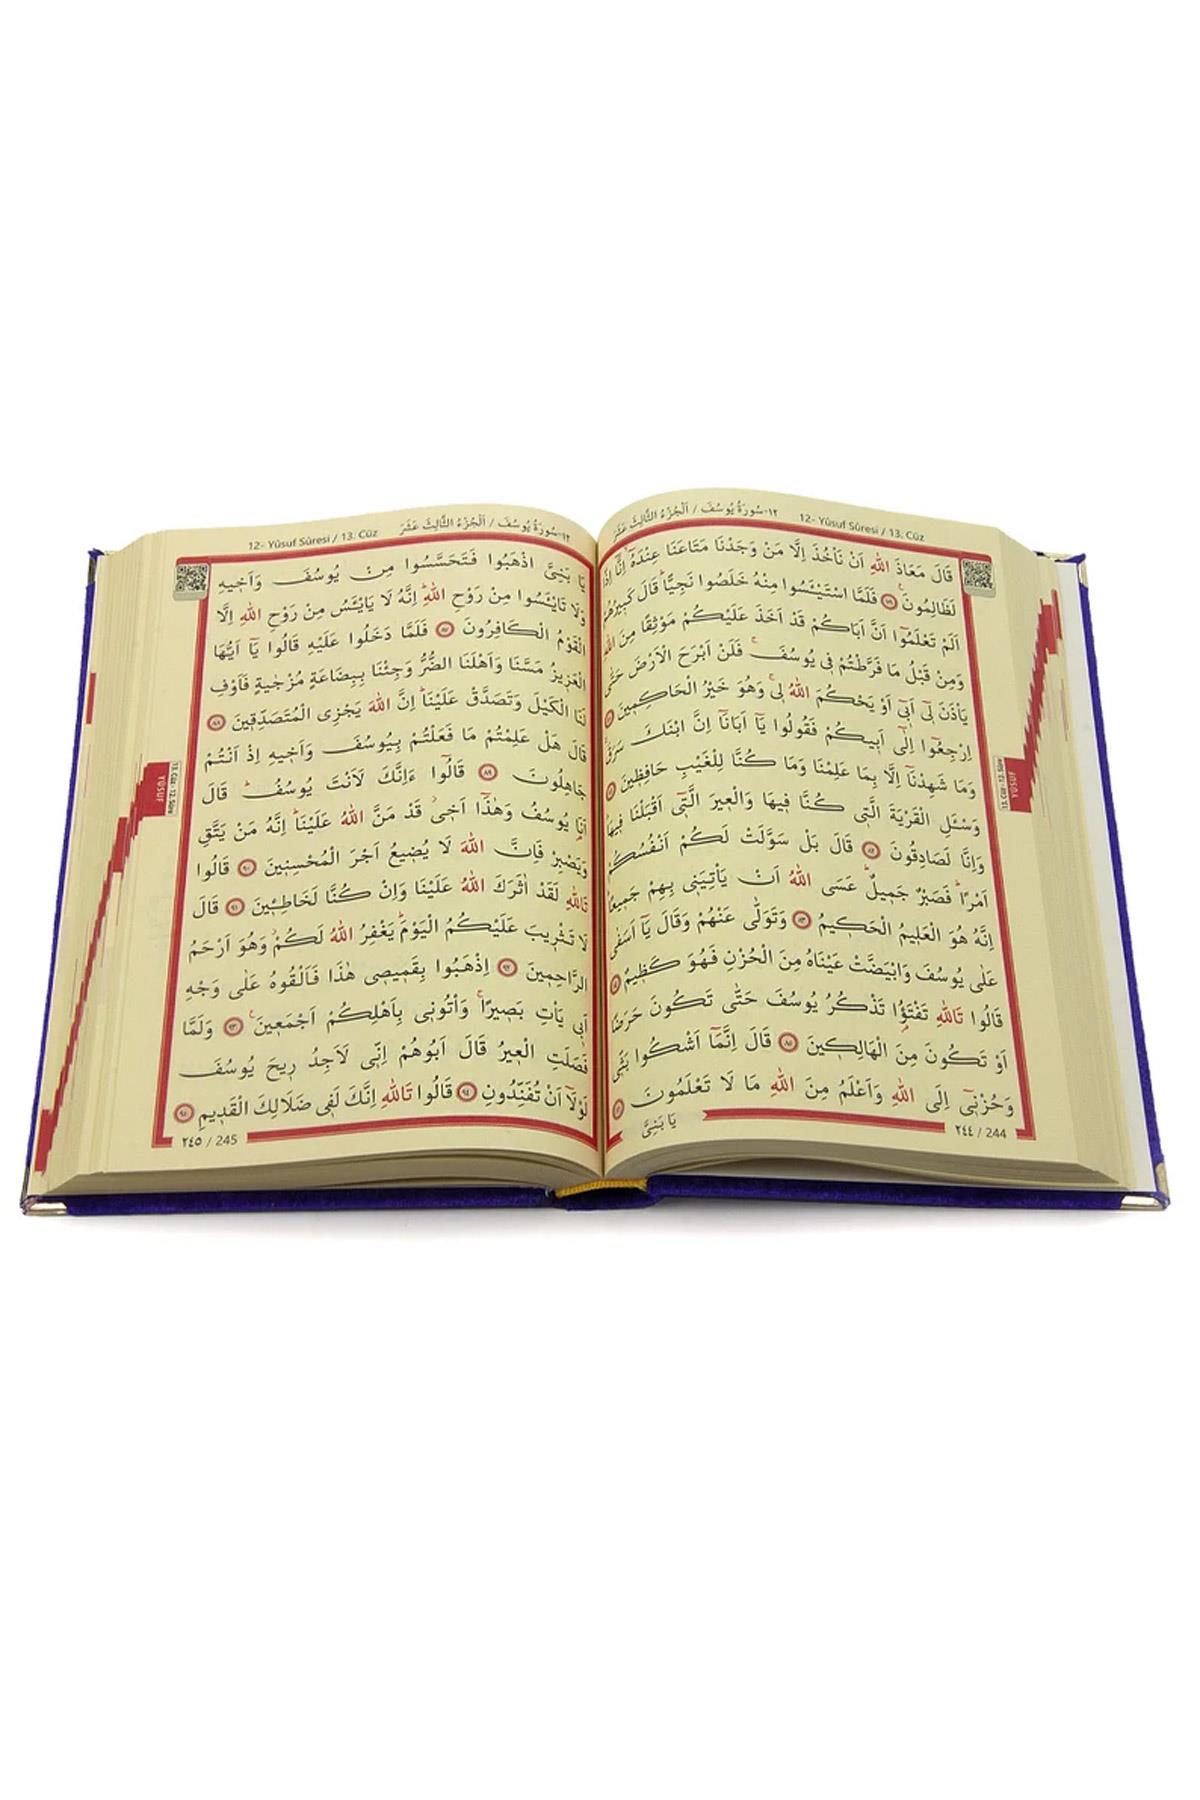 ١٢-سُورَةُ يُوسُفَ / اَلْجُزْءُ الثَّالِثَ عَشَرَ 12- Yûsuf Sûresi / 13. Cüz
قَالَ مَعَاذَ اللّٰهِ اَنْ نَأْخُذَ اِلَّا مَنْ وَجَدْنَا مَتَاعَنَا عِنْدَهُٓۙ اِنَّٓا اِذًا
لَظَالِمُونَ۟ ﴿٧٩﴾ فَلَمَّا اسْتَيْـَٔسُوا مِنْهُ خَلَصُوا نَجِيًّاۜ قَالَ كَب۪يرُهُمْ
اَلَمْ تَعْلَمُٓوا اَنَّ اَبَاكُمْ قَدْ اَخَذَ عَلَيْكُمْ مَوْثِقًا مِنَ اللّٰهِ
وَمِنْ قَبْلُ مَا فَرَّطْتُمْ ف۪ي يُوسُفَۚ فَلَنْ اَبْرَحَ الْاَرْضَ حَتّٰى
يَأْذَنَ ل۪ٓي اَب۪ٓي اَوْ يَحْكُمَ اللّٰهُ ل۪يۚ وَهُوَ خَيْرُ الْحَاكِم۪ينَ
اِرْجِعُٓوا اِلٰٓى اَب۪يكُمْ فَقُولُوا يَٓا اَبَانَٓا اِنَّ ابْنَكَ سَرَقَۚ
وَمَا شَهِدْنَٓا اِلَّا بِمَا عَلِمْنَا وَمَا كُنَّا لِلْغَيْبِ حَافِظ۪ينَ
وَسْـَٔلِ الْقَرْيَةَ الَّت۪ي كُنَّا ف۪يهَا وَالْع۪يرَ الَّت۪ٓي اَقْبَلْنَا ف۪يهَاۜ
وَاِنَّا لَصَادِقُونَ ﴿٨٢﴾ قَالَ بَلْ سَوَّلَتْ لَكُمْ اَنْفُسُكُمْ
اَمْرًاۜ فَصَبْرٌ جَم۪يلٌۜ عَسَى اللّٰهُ اَنْ يَأْتِيَن۪ي بِهِمْ جَم۪يعًاۜ
اِنَّهُ هُوَ الْعَل۪يمُ الْحَك۪يمُ ﴿٨٣﴾ وَتَوَلّٰى عَنْهُمْ وَقَالَ يَٓا اَسَفٰى
عَلٰى يُوسُفَ وَابْيَضَّتْ عَيْنَاهُ مِنَ الْحُزْنِ فَهُوَ كَظ۪يمٌ
قَالُوا تَاللّٰهِ تَفْتَؤُ۬ا تَذْكُرُ يُوسُفَ حَتّٰى تَكُونَ حَرَضًا
اَوْ تَكُونَ مِنَ الْهَالِك۪ينَ ﴿٨٥﴾ قَالَ اِنَّمَٓا اَشْكُوا بَثّ۪ي
وَحُزْن۪ٓي اِلَى اللّٰهِ وَاَعْلَمُ مِنَ اللّٰهِ مَا لَا تَعْلَمُونَ
يَا بَنِيَّ
٢٤٤ / 244
13. Cüz - 12. Sûre
YÛSUF
١٢-سُورَةُ يُوسُفَ / اَلْجُزْءُ الثَّالِثَ عَشَرَ 12- Yûsuf Sûresi / 13. Cüz
يَا بَنِيَّ اذْهَبُوا فَتَحَسَّسُوا مِنْ يُوسُفَ وَاَخ۪يهِ
وَلَا تَا۬يْـَٔسُوا مِنْ رَوْحِ اللّٰهِۜ اِنَّهُ لَا يَا۬يْـَٔسُ مِنْ رَوْحِ اللّٰهِ اِلَّا
الْقَوْمُ الْكَافِرُونَ ﴿٨٧﴾ فَلَمَّا دَخَلُوا عَلَيْهِ قَالُوا يَٓا اَيُّهَا
الْعَز۪يزُ مَسَّنَا وَاَهْلَنَا الضُّرُّ وَجِئْنَا بِبِضَاعَةٍ مُزْجٰيةٍ فَاَوْفِ
لَنَا الْكَيْلَ وَتَصَدَّقْ عَلَيْنَاۜ اِنَّ اللّٰهَ يَجْزِي الْمُتَصَدِّق۪ينَ ﴿٨٨﴾
قَالَ هَلْ عَلِمْتُمْ مَا فَعَلْتُمْ بِيُوسُفَ وَاَخ۪يهِ اِذْ اَنْتُمْ
جَاهِلُونَ ﴿٨٩﴾ قَالُٓوا ءَاِنَّكَ لَاَنْتَ يُوسُفُۜ قَالَ
اَنَا۬ يُوسُفُ وَهٰذَٓا اَخ۪يۘ قَدْ مَنَّ اللّٰهُ عَلَيْنَاۜ اِنَّهُ مَنْ يَتَّقِ
وَيَصْبِرْ فَاِنَّ اللّٰهَ لَا يُض۪يعُ اَجْرَ الْمُحْسِن۪ينَ ﴿٩٠﴾ قَالُوا
تَاللّٰهِ لَقَدْ اٰثَرَكَ اللّٰهُ عَلَيْنَا وَاِنْ كُنَّا لَخَاطِـ۪ٔينَ ﴿٩١﴾ قَالَ
لَا تَثْر۪يبَ عَلَيْكُمُ الْيَوْمَۜ يَغْفِرُ اللّٰهُ لَكُمْۘ وَهُوَ اَرْحَمُ
الرَّاحِم۪ينَ ﴿٩٢﴾ اِذْهَبُوا بِقَم۪يص۪ي هٰذَا فَاَلْقُوهُ عَلٰى وَجْهِ
اَب۪ي يَأْتِ بَص۪يرًاۚ وَأْتُون۪ي بِاَهْلِكُمْ اَجْمَع۪ينَ۟ ﴿٩٣﴾ وَلَمَّا
فَصَلَتِ الْع۪يرُ قَالَ اَبُوهُمْ اِنّ۪ي لَاَجِدُ ر۪يحَ يُوسُفَ
لَوْلَٓا اَنْ تُفَنِّدُونِ ﴿٩٤﴾ قَالُوا تَاللّٰهِ اِنَّكَ لَف۪ي ضَلَالِكَ الْقَد۪يمِ ﴿٩٥﴾
٢٤٥ / 245
13. Cüz - 12. Sûre
YÛSUF